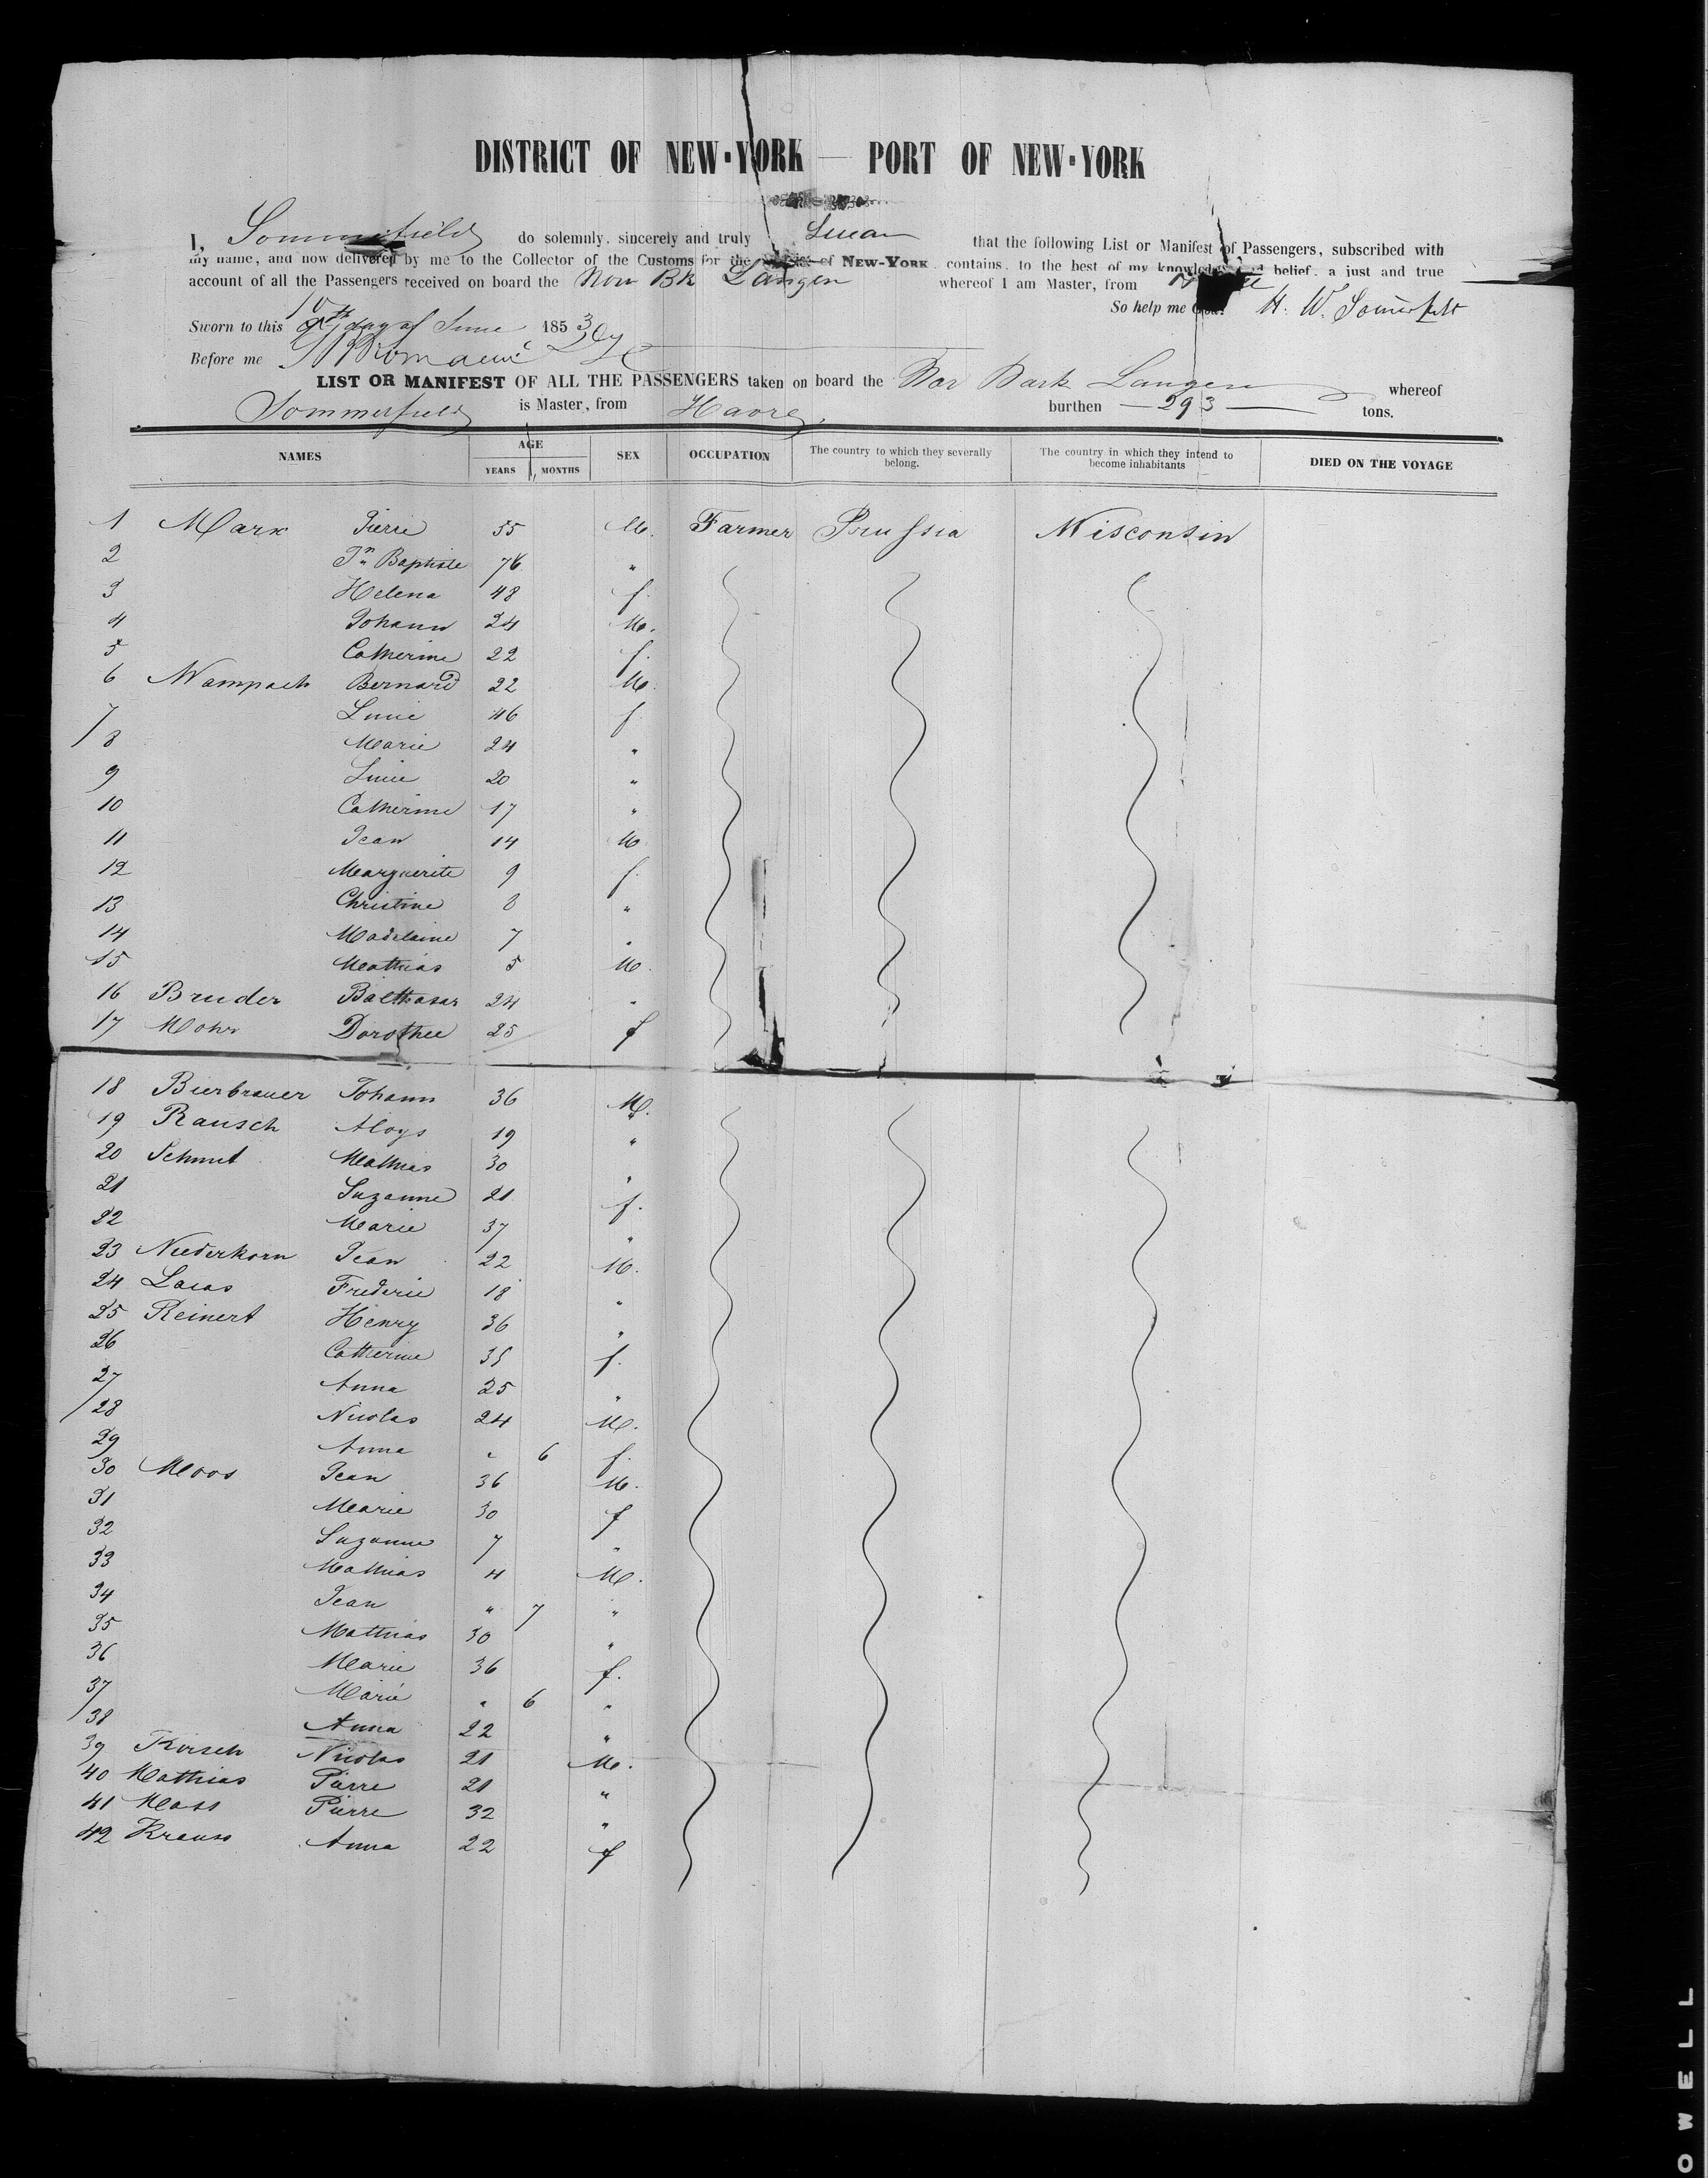 DISTRICT OF NEW-YORK — PORT OF NEW-YORK
I, Sommerfield do solemnly, sincerely and truly Swear that the following List or Manifest of Passengers, subscribed with
my name, and now delivered by me to the Collector of the Customs for the of NEW-YORK, contains, to the best of my knowledge and belief, a just and true
account of all the Passengers received on board the Nor Bk Langen whereof I am Master, from
So help me God. H. W. Somerfelt
Sworn to this 10th day of June 1853
Before me
LIST OR MANIFEST OF ALL THE PASSENGERS taken on board the Nor Bark Langen whereof
Sommerfield is Master, from Havre, burthen — 293 — tons.
NAMES AGE YEARS MONTHS SEX OCCUPATION The country to which they severally belong. The country in which they intend to become inhabitants DIED ON THE VOYAGE
1 Mark Pierre 55 M. Farmer Prussia Wisconsin
2 Jn Baptiste 76 "
3 Helena 48 f.
4 Johann 24 M.
5 Catherine 22 f.
6 Wampach Bernard 22 M.
7 46 f.
8 Marie 24 "
9 20 "
10 Catherine 17 "
11 Jean 14 M
12 Marguerite 9 f.
13 Christine 8 "
14 Madelaine 7 "
15 Mathias 5 M.
16 Bruder Balthasar 24 "
17 Mohr Dorothee 25 f
18 Bierbrauer Johann 36 M.
19 Rausch Aloys 19 "
20 Schmit Mathias 30 "
21 Suzanne 21 f.
22 Marie 37 "
23 Niederkorn Jean 22 M.
24 Lucas Frederic 18 "
25 Reinert Henry 36 "
26 Catherine 35 f.
27 Anna 25 "
28 Nicolas 24 M.
29 Anna " 6 f.
30 Moos Jean 36 M.
31 Marie 30 f
32 Suzanne 7 "
33 Mathias 4 M.
34 Jean " 7 "
35 Mathias 30 "
36 Marie 36 f.
37 Marie " 6 "
38 Anna 22 "
39 Kirsch Nicolas 21 M.
40 Mathias Pierre 21 "
41 Mass Pierre 32 "
42 Krauss Anna 22 f
OWELL